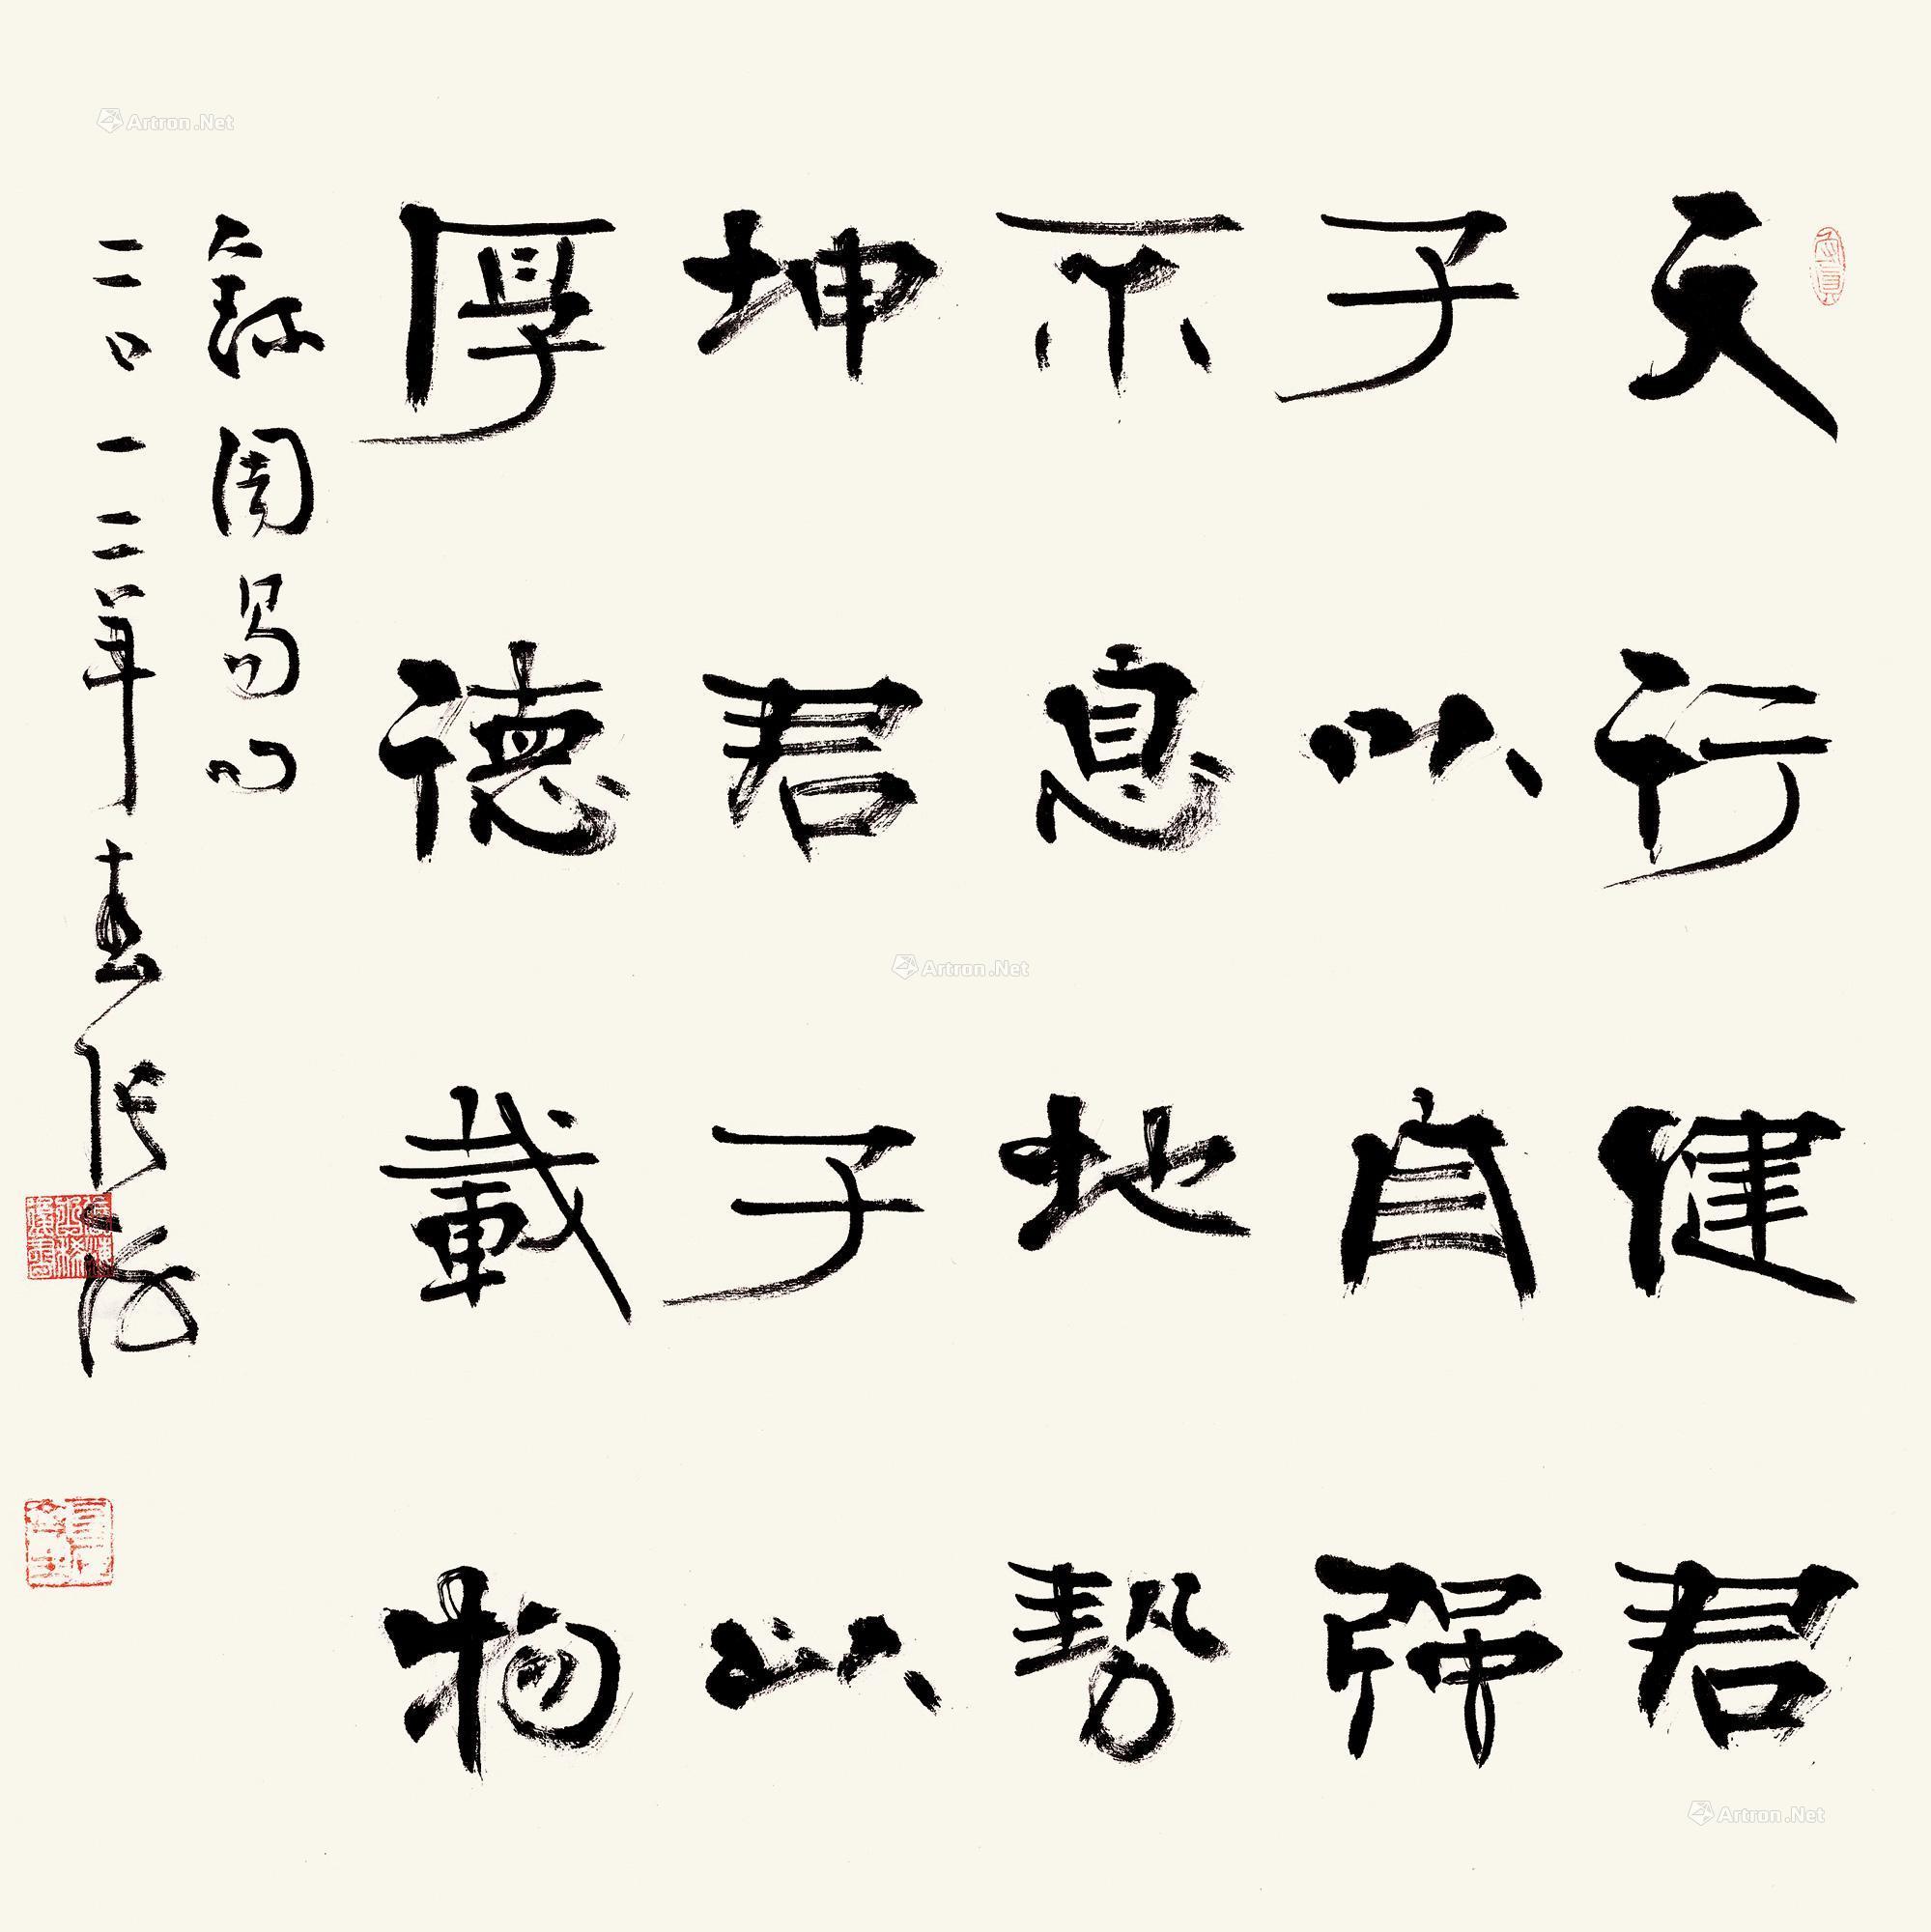 天行健君
子以自强
不息地势
坤君子以
厚德载物
录周易句
二〇一二年春张海
Artron.Net
Artron.Net
Artron.Net